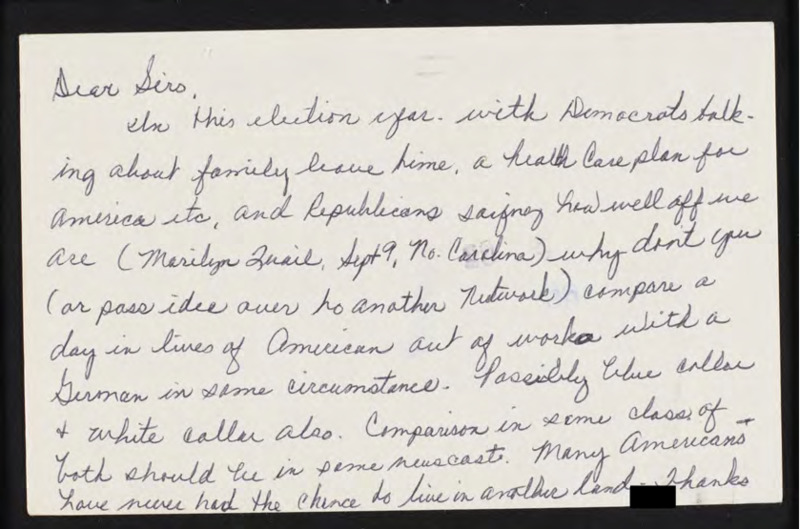 Dear Sirs,
In this election year. with Democrats talk-
ing about family leave time, a health Care plan for
America etc, and Republicans saigney how well off we
are (Marilyn Quail, Sept 9, No. Carolina) why don't you
(or pass idee over to another Network) compare a
day in lives of American out of work with a
German in same circumstance. Possibley blue collar
+ white collar also. Comparison in same class of
both should be in same newscast. Many Americans
have never had the chance to live in another land. Thanks